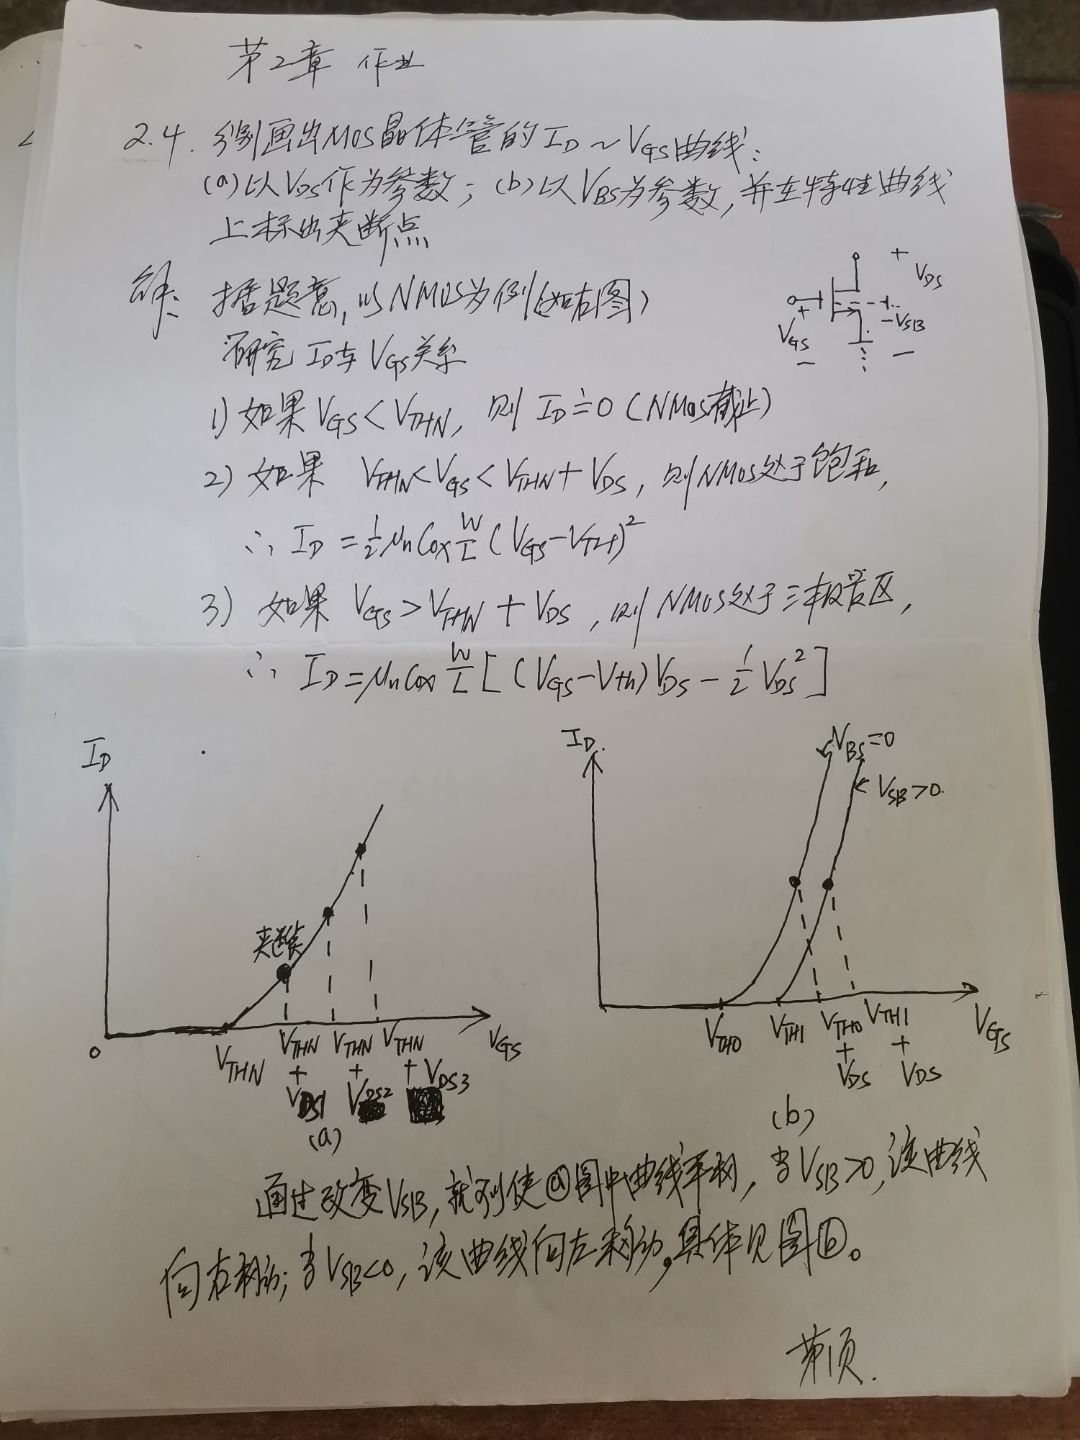 第2章 作业
2.4. 分别画出MOS晶体管的ID~VGS曲线:
(a)以VDS作为参数; (b)以VBS为参数, 并在特性曲线
上标出夹断点
解: 据题意, 以NMOS为例(如右图)
+
VDS
+
VGS
-
-VSB
-
研究ID与VGS关系
1) 如果VGS<VTHN, 则 ID≐0 (NMOS截止)
2) 如果 VTHN<VGS<VTHN+VDS, 则NMOS处于饱和,
∴ ID=½μnCox W/L (VGS-VTH)²
3) 如果 VGS>VTHN+VDS, 则NMOS处于三极管区,
∴ ID=μnCox W/L [(VGS-Vth)VDS-½VDS²]
ID
夹断点
0
VTHN
VTHN+VDS1
VTHN+VDS2
VTHN+VDS3
VGS
(a)
ID
VBS=0
VSB>0
VTH0
VTH1
VTH0+VDS
VTH1+VDS
VGS
(b)
通过改变VSB, 就列使ⓐ图中曲线平移, 当VSB>0, 该曲线
向右移动; 当VSB<0, 该曲线向左移动, 具体见图ⓑ。
第 页.